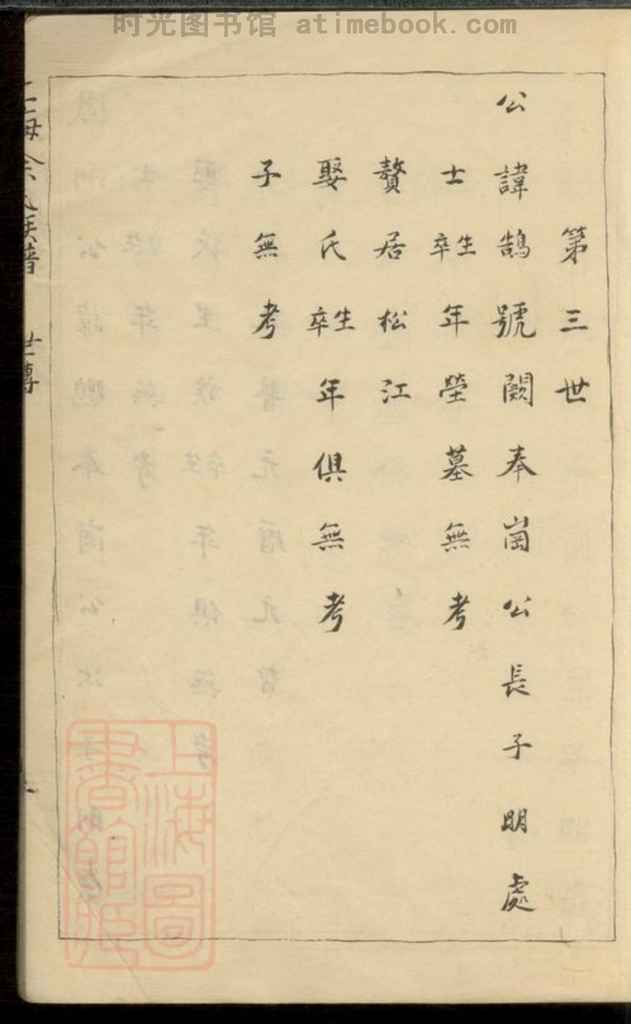 时光图书馆 atimebook.com
第三世
公諱鵠號闕奉崗公長子明處
士生卒年塋墓無考
贅居松江
娶氏生卒年俱無考
子無考
上海余氏族譜 世傳
上海圖書館藏